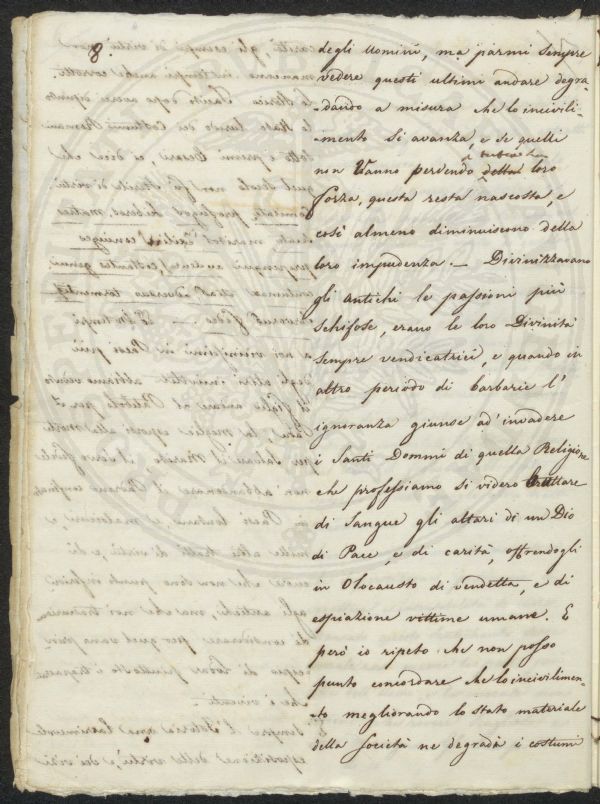 8.
degli uomini, ma parmi sempre
vedere questi ultimi andare degra-
-dando a misura che lo incivili-
-mento si avanza, e se quelli
non vanno perdendo della loro
forza, questa resta nascosta, e
così almeno diminuiscono della
loro impudenza. — Divinizzavano
gli antichi le passioni più
schifose, erano le loro Divinità
sempre vendicatrici, e quando in
altro periodo di barbarie l'
ignoranza giunse ad' invadere
i Santi Dommi di quella Religione
che professiamo si videro
di Sangue gli altari di un Dio
di Pace, e di carità, offrendogli
in Olocausto di vendetta, e di
espiazione vittime umane. E
però io ripeto che non posso
punto concordare che lo incivilimen-
-to megliorando lo stato materiale
della Società ne degradi i costumi